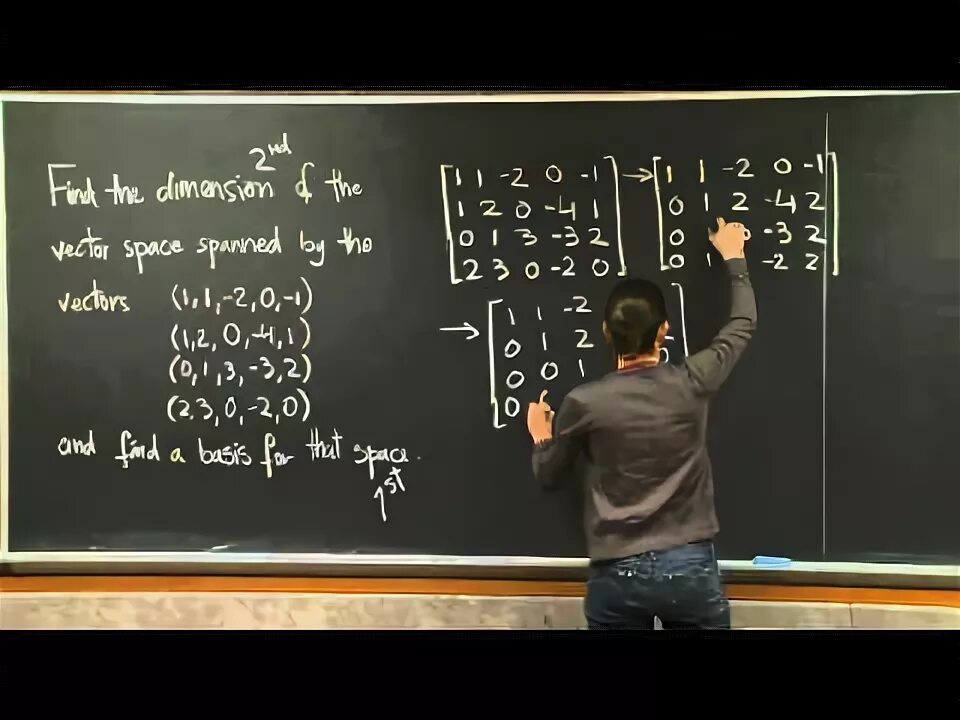 2nd
Find the dimension of the
vector space spanned by the
vectors (1,1,-2,0,-1)
(1,2,0,-4,1)
(0,1,3,-3,2)
(2,3,0,-2,0)
and find a basis for that space.
1st
1 1 -2 0 -1 → 1 1 -2 0 -1
1 2 0 -4 1 0 1 2 -4 2
0 1 3 -3 2 0 -3 2
2 3 0 -2 0 0 1 -2 2
→ 1 1 -2
0 1 2
0 0 1 0
0